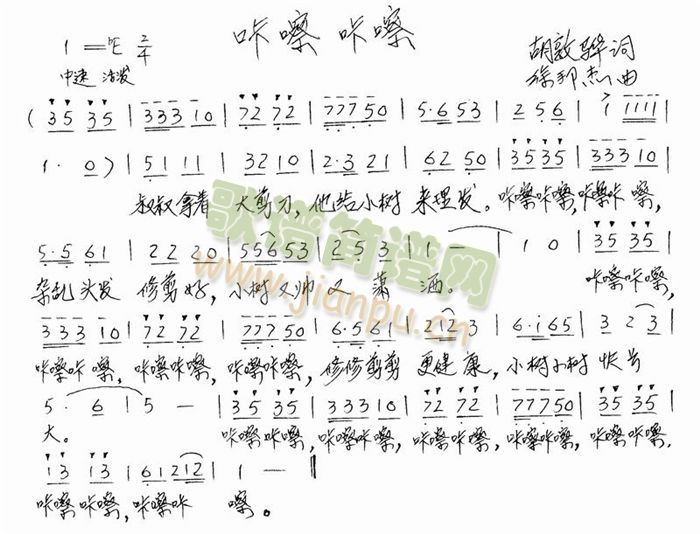 咔嚓咔嚓
1=♭E 2/4
胡敦骅词
中速 活发
徐邦杰曲
( 35 35 | 333 10 | 72 72 | 777 50 | 5·6 53 | 2 5 6 | 1 1111 |
1· 0 ) | 51 11 | 32 10 | 2·3 21 | 62 50 | 35 35 | 333 10 |
叔叔拿着 大剪刀, 他给小树 来理发。 咔嚓咔嚓, 咔嚓咔 嚓,
5·5 61 | 22 20 | 556 53 | 2 5 3 | 1 — | 1 0 | 35 35 |
杂乱头发 修剪好, 小树又帅又 潇 洒。 咔嚓咔嚓,
333 10 | 72 72 | 777 50 | 6·5 61 | 212 3 | 6·i 65 | 3 2 3 |
咔嚓咔 嚓, 咔嚓咔嚓, 咔嚓咔嚓, 修修剪剪 更健 康, 小树小树 快长
5· 6 | 5 — | 35 35 | 333 10 | 72 72 | 777 50 | 35 35 |
大。 咔嚓咔嚓, 咔嚓咔嚓, 咔嚓咔嚓, 咔嚓咔嚓, 咔嚓咔嚓,
13 13 | 61 212 | 1 — ‖
咔嚓咔嚓, 咔嚓咔 嚓。
歌谱简谱网
www.jianpu.cn